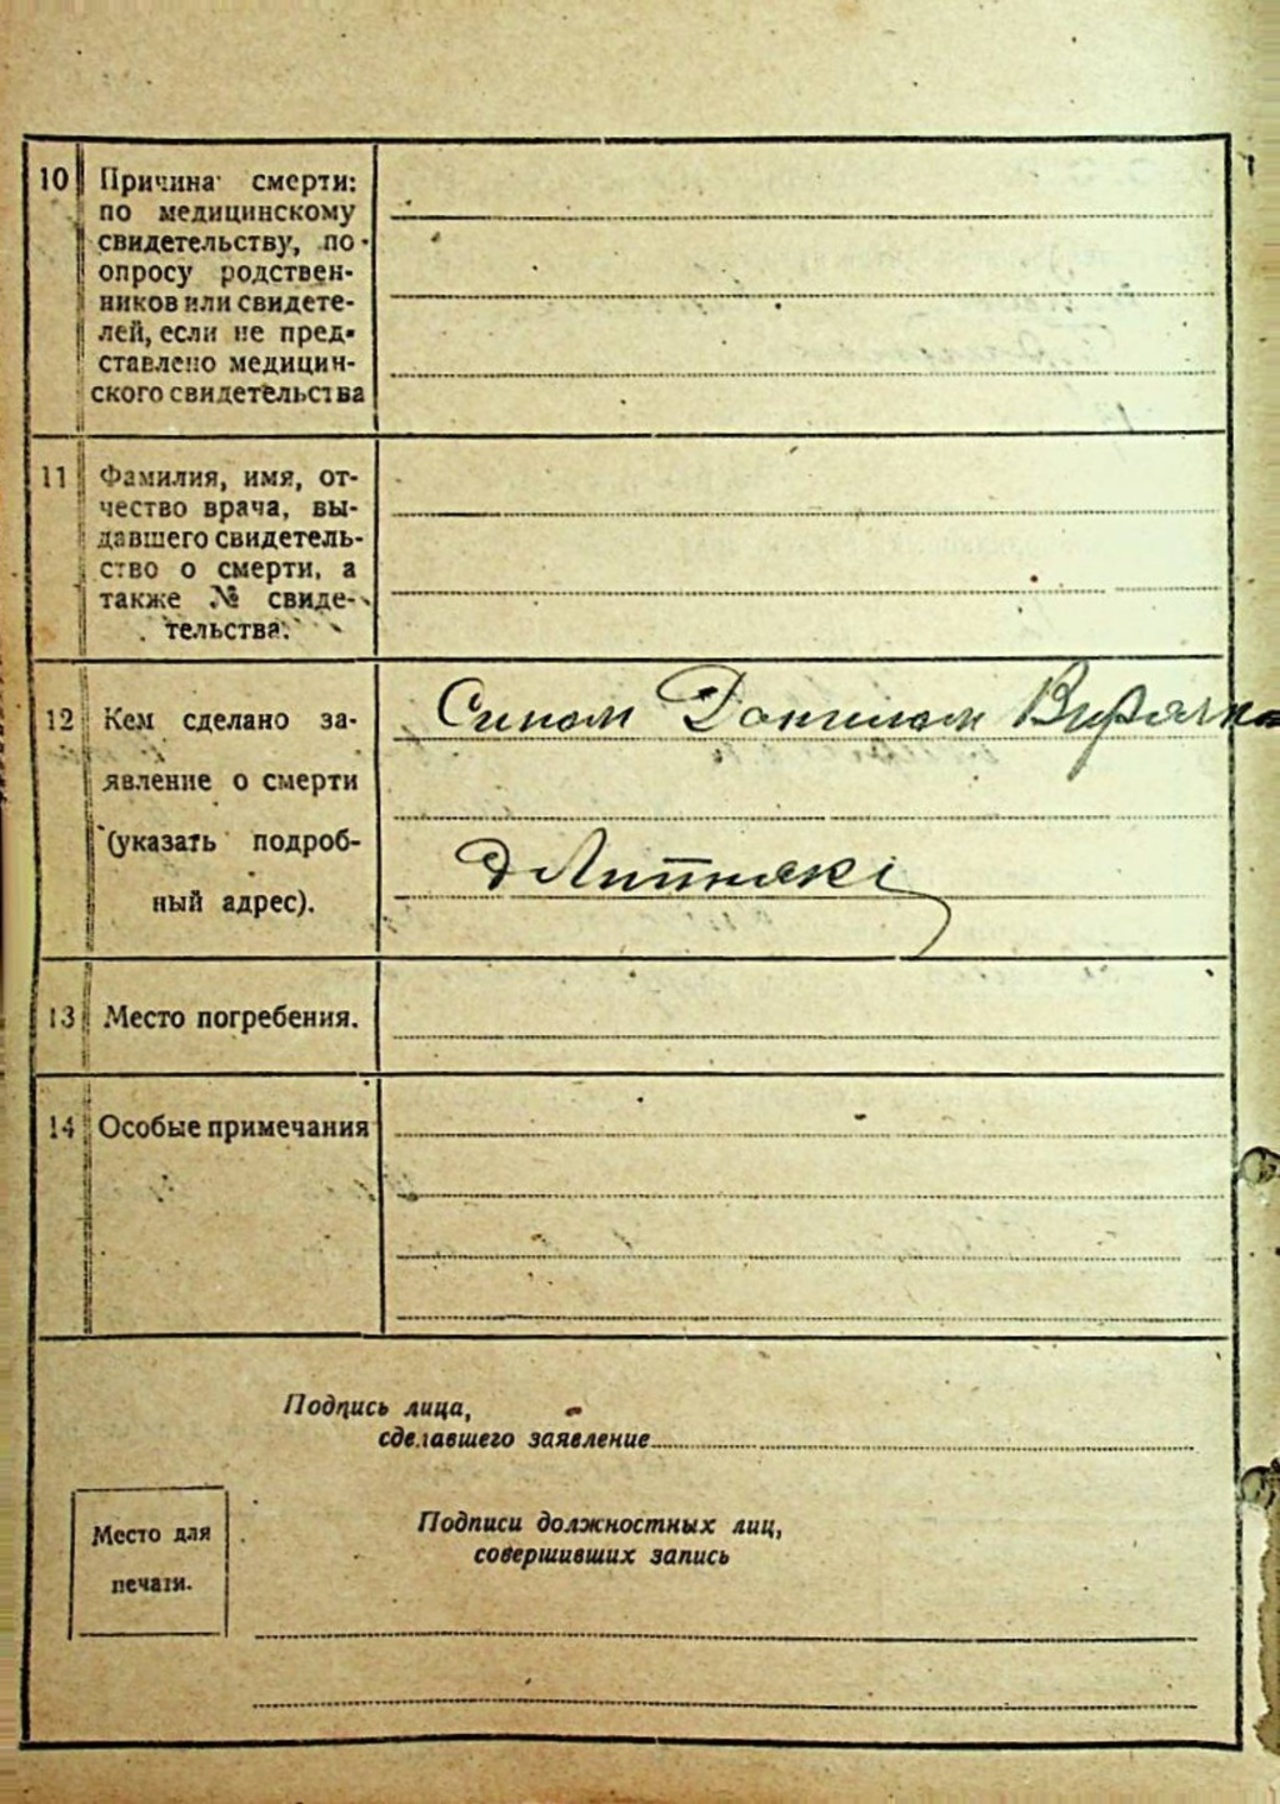 10 Причина смерти:
по медицинскому
свидетельству, по
опросу родствен-
ников или свидете-
лей, если не пред-
ставлено медицин-
ского свидетельства
11 Фамилия, имя, от-
чество врача, вы-
давшего свидетель-
ство о смерти, а
также № свиде-
тельства.
12 Кем сделано за-
явление о смерти
(указать подроб-
ный адрес).
Сином Данилом
д Липнякі
13 Место погребения.
14 Особые примечания
Подпись лица,
сделавшего заявление
Место для
печати.
Подписи должностных лиц,
совершивших запись